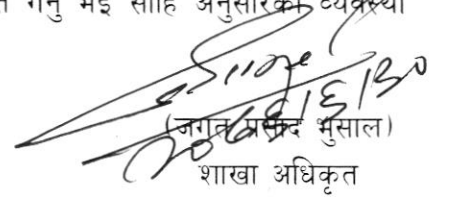 गर्नु भई सोहि अनुसारको व्यवस्था
(जगत प्रसाद भुसाल)
शाखा अधिकृत